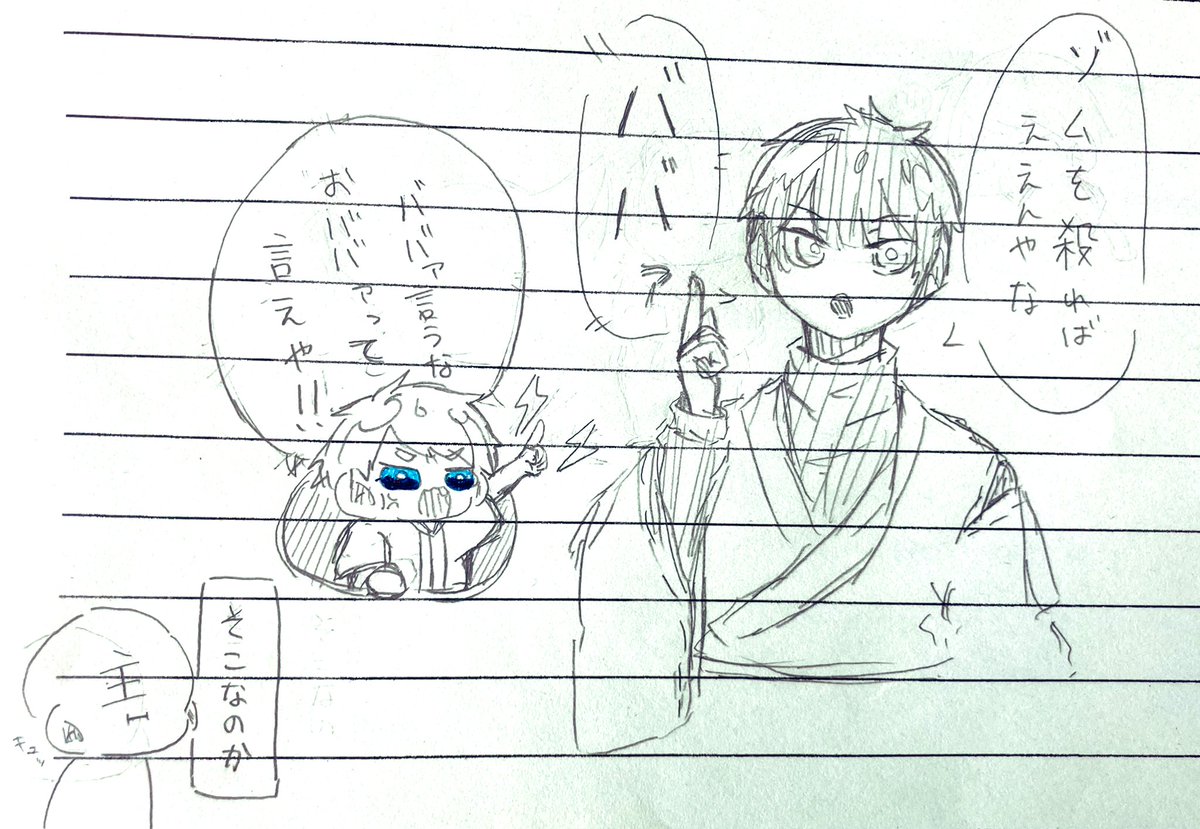 ゾムを殺れば
ええんやな
ババァ
ババァ言うな
おババァって
言えや!!
そこなのか
主
キュッ